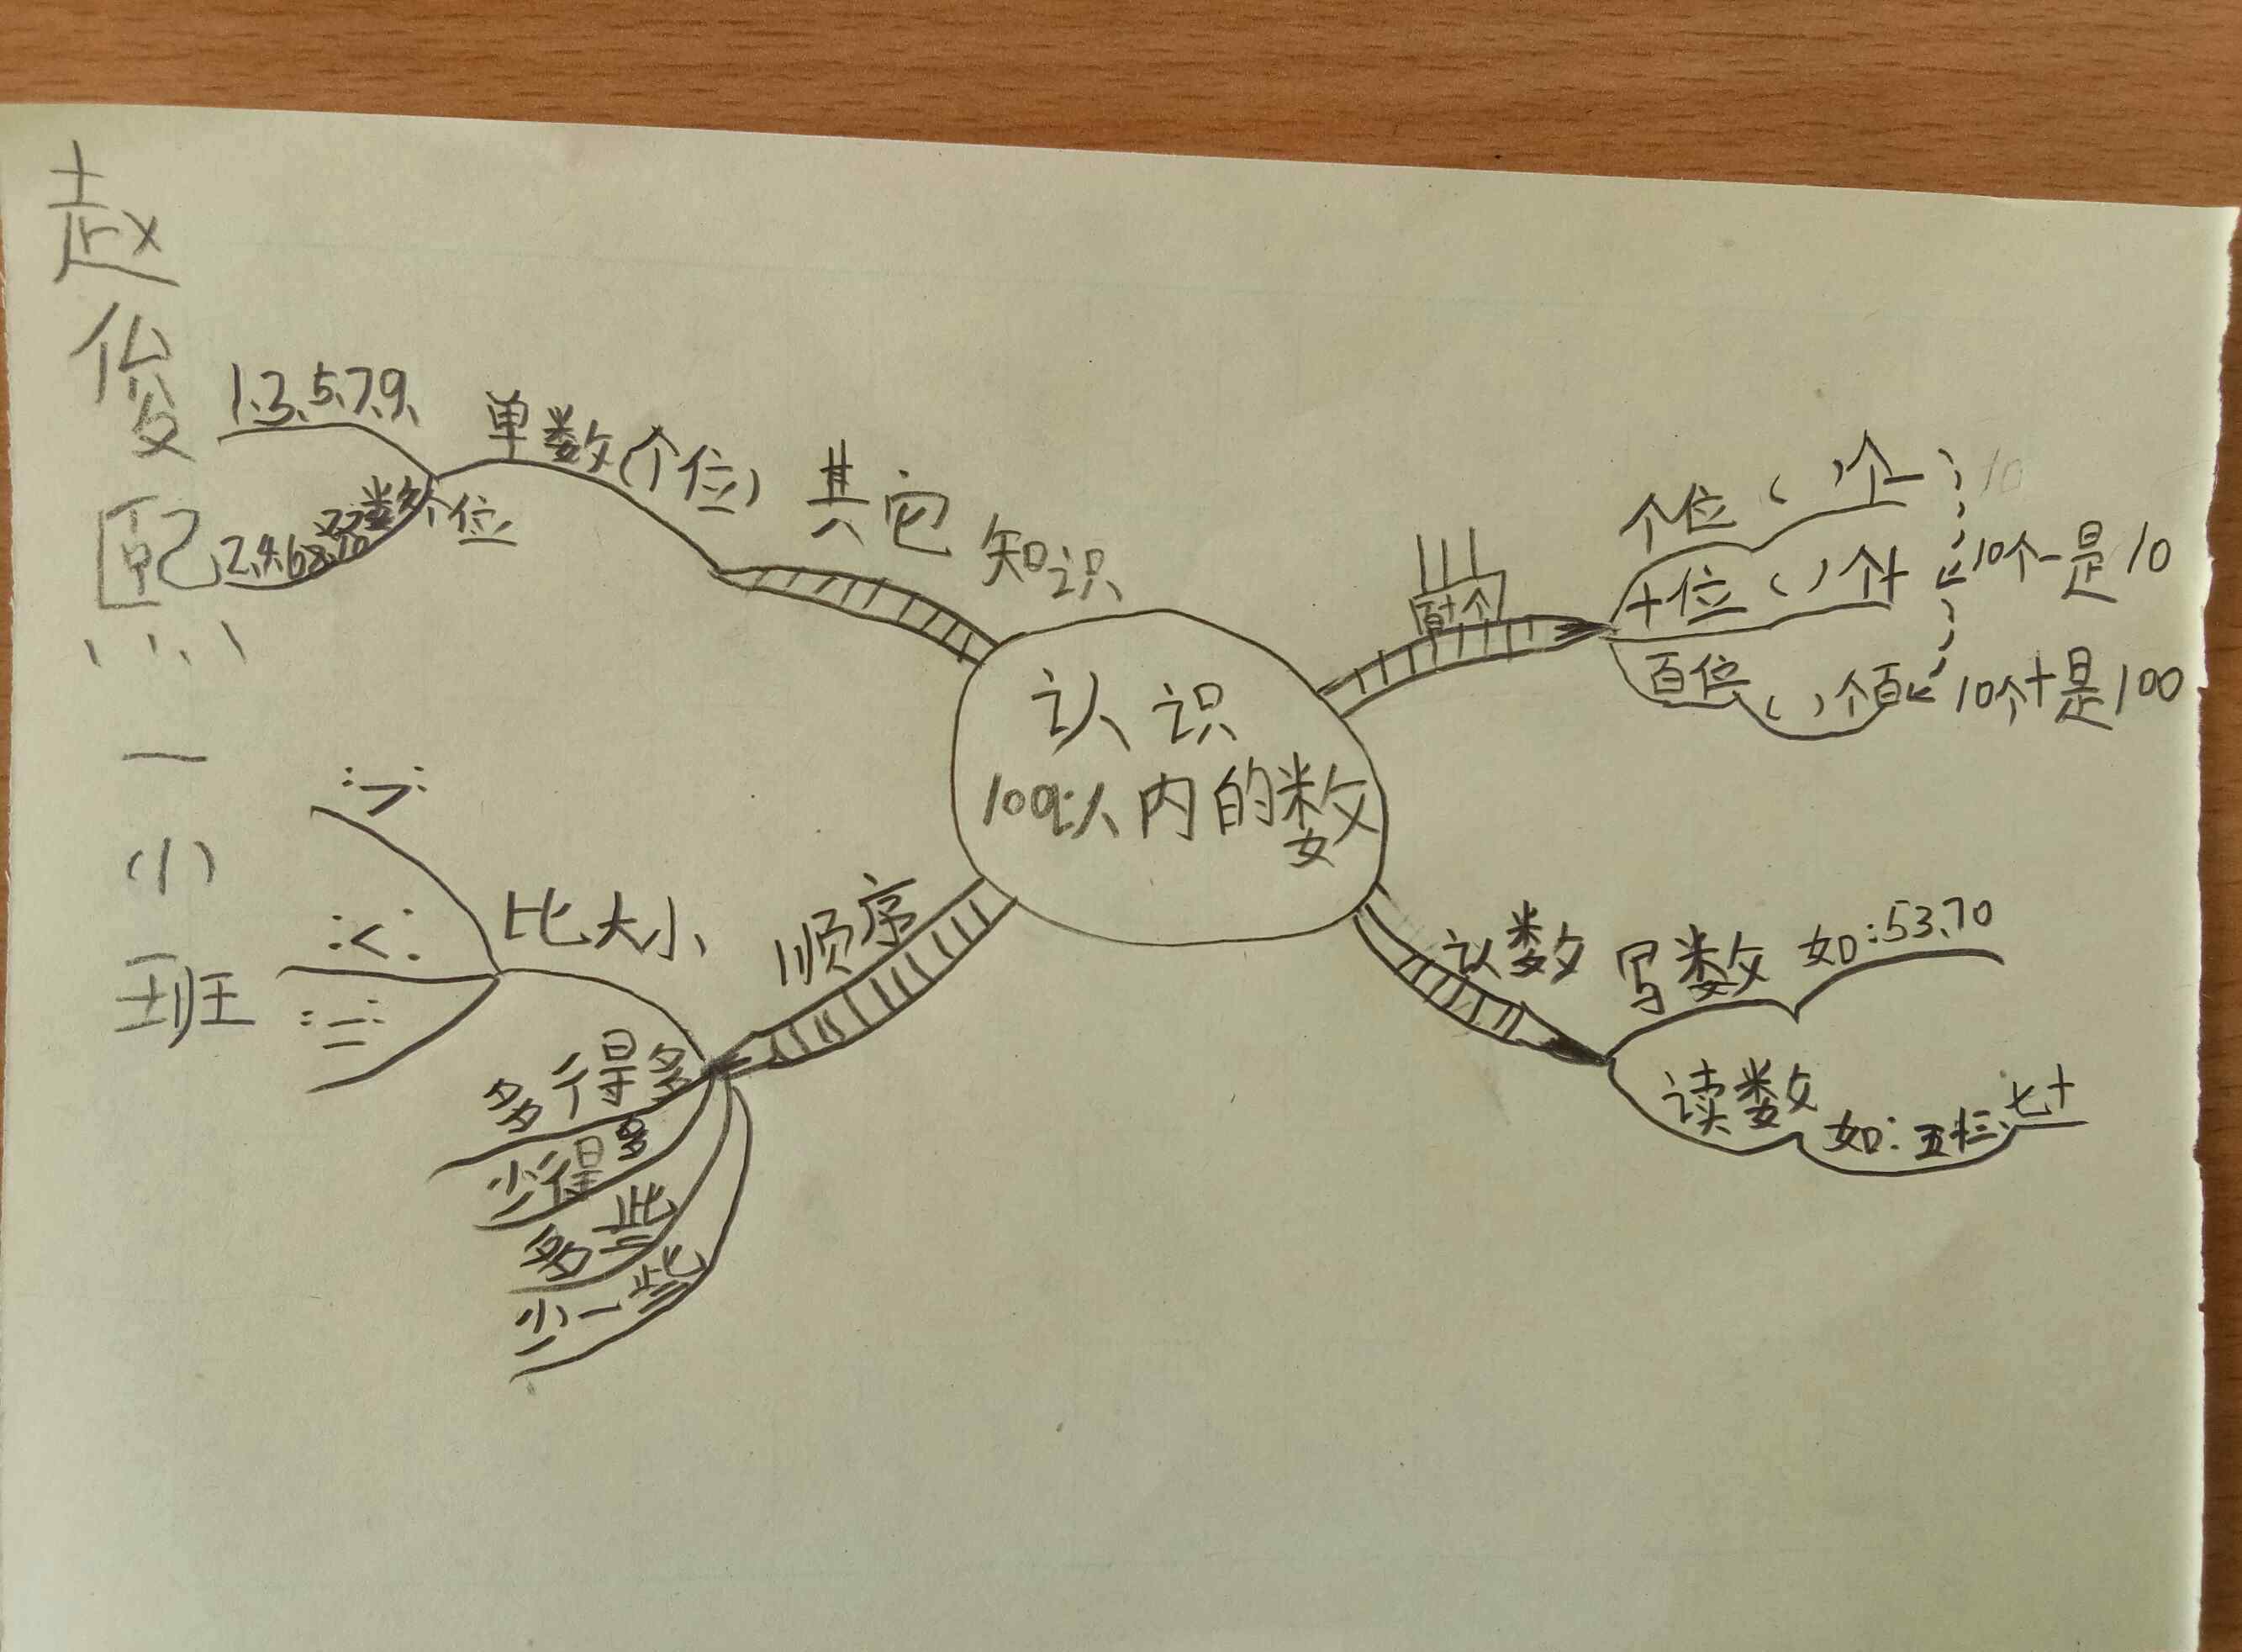 赵俊熙
一(1)班
认识
100以内的数
其它知识
单数(个位)
1.3.5.7.9.
双数个位
2.4.6.8.10
百十个
个位( )个一
十位( )个十
百位( )个百
10
10个一是10
10个十是100
认数
写数 如:53.70
读数 如:五十三、七十
顺序
比大小
:>:
:<:
:=:
多得多
少得多
多一些
少一些